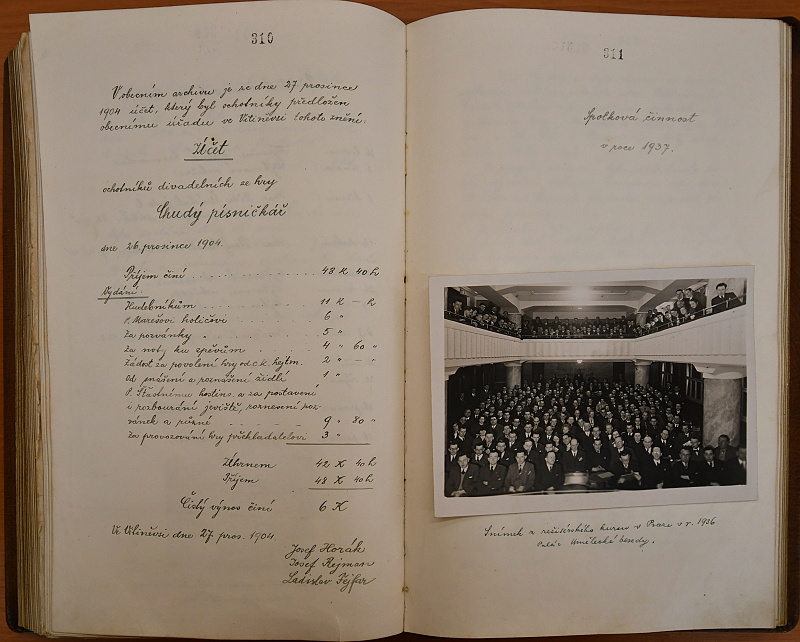 310
V obecním archivu je ze dne 27 prosince
1904 účet, který byl ochotníky předložen
obecnímu úřadu ve Vitiněvsi tohoto znění:
Účet
ochotníků divadelních ze hry
Chudý písničkář
dne 26. prosince 1904.
Příjem činí . . . . . 48 K 40 h
Vydání:
Hudebníkům . . . . . 11 K — h
P. Marešovi holičovi . . . 6 "
Za pozvánky . . . . . 5 "
Za noty ku zpěvům . . . . 4 " 60 "
Žádost za povolení hry od c.k. hejtm. 2 " — "
Od snášení a roznášení židlí 1 "
P. Šťastnému hostins. a za postavení
i rozbourání jeviště, roznesení poz-
vánek a různé . . . . . 9 " 80 "
Za provozování hry překladatelovi 3 "
Úhrnem 42 K 40 h
Příjem 48 K 40 h
Čistý výnos činí 6 K
Ve Vitiněvsi dne 27. pros. 1904.
Josef Horák
Josef Rejman
Ladislav Fejfar
311
Spolková činnost
v roce 1937.
Snímek z režisérského kursu v Praze v r. 1936
Umělecké besedy.